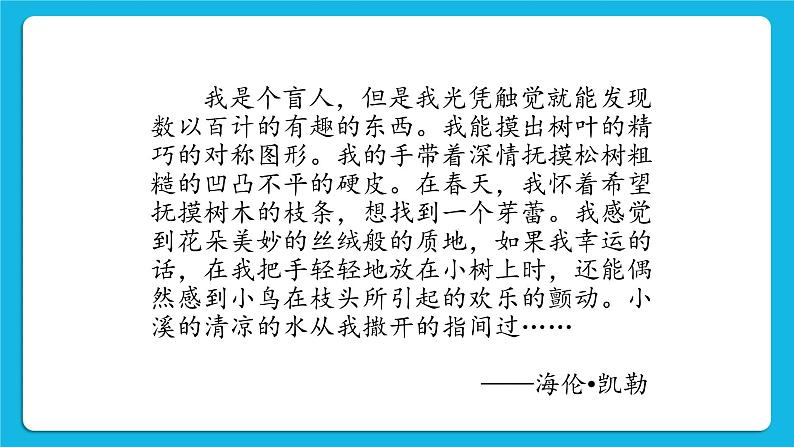 我是个盲人，但是我光凭触觉就能发现
数以百计的有趣的东西。我能摸出树叶的精
巧的对称图形。我的手带着深情抚摸松树粗
糙的凹凸不平的硬皮。在春天，我怀着希望
抚摸树木的枝条，想找到一个芽蕾。我感觉
到花朵美妙的丝绒般的质地，如果我幸运的
话，在我把手轻轻地放在小树上时，还能偶
然感到小鸟在枝头所引起的欢乐的颤动。小
溪的清凉的水从我撒开的指间过……
——海伦•凯勒